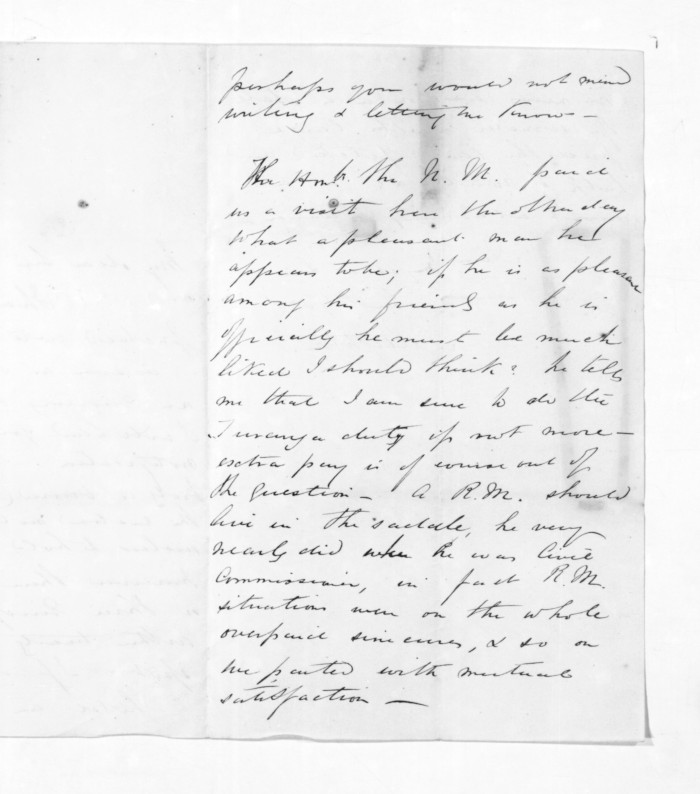 perhaps you would not mind
writing & letting me know –
The Honb. the N. M. paid
us a visit here the other day
What a pleasant man he
appears to be; if he is as pleasant
among his friends as he is
officially he must be much
liked I should think? he tells
me that I am sure to do the
Turanga duty if not more –
extra pay is of course out of
the question – A R.M. should
live in the saddle, he very
nearly did when he was Civil
Commissioner, in fact R.M.
situations were on the whole
overpaid sinecures, & so on
we parted with mutual
satisfaction –